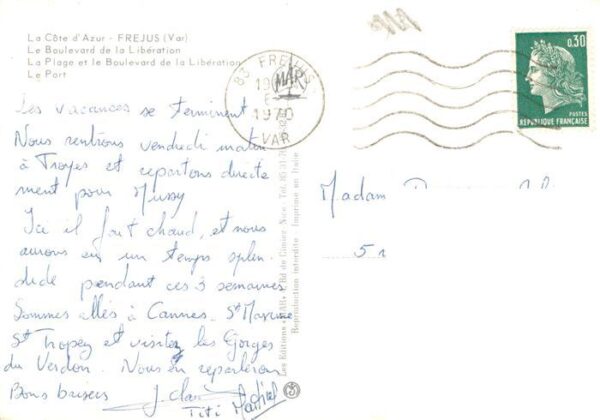 La Côte d'Azur - FREJUS (Var)
Le Boulevard de la Libération
La Plage et le Boulevard de la Libération
Le Port
83 FREJUS
1970
VAR
0,30
POSTES
REPUBLIQUE FRANÇAISE
Les vacances se terminent
Nous rentrons vendredi matin
à Troyes et repartons directe
ment pour Mussy
Ici il fait chaud, et nous
avons eu un temps splen
dide pendant ces 3 semaines
Sommes allés à Cannes. St Maxime
St Tropez et visitez les Gorges
du Verdon. Nous en reparlerons
Bons baisers
J. Cla
Titi Martial
Les Editions
Bd de Cimiez, Nice
Reproduction interdite Imprimé en Italie
Madam
51